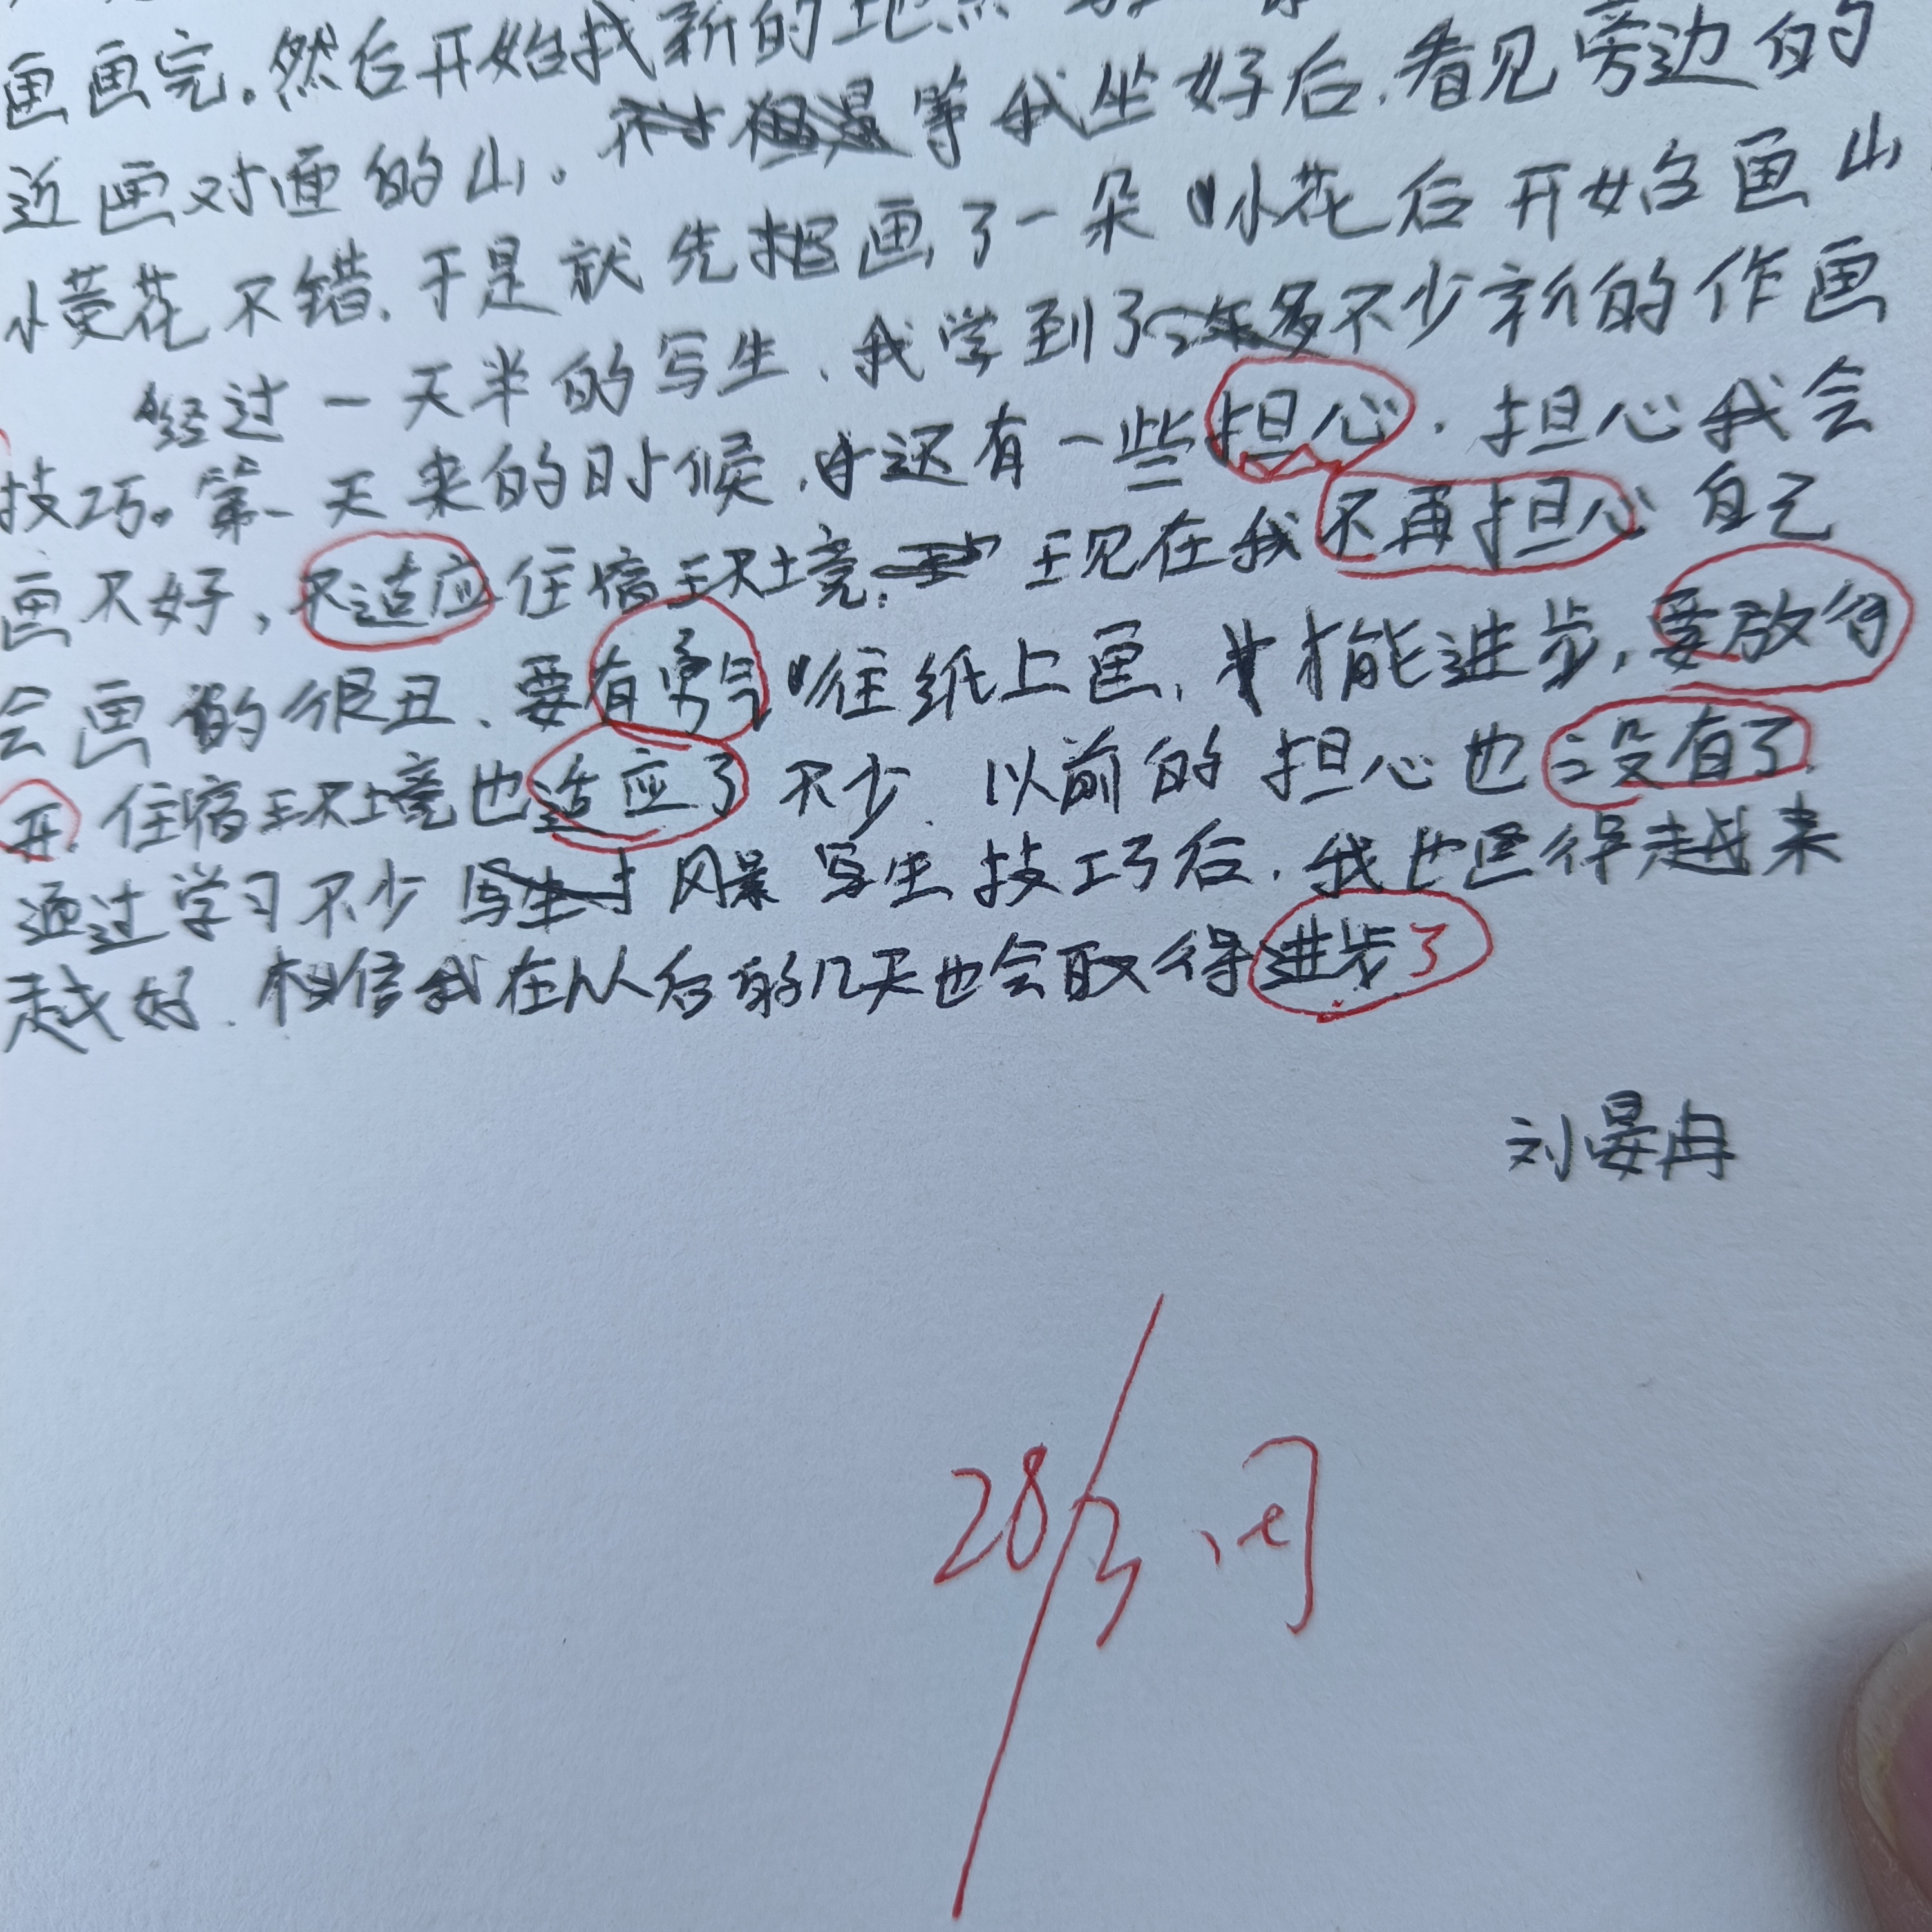 画画完。然后开始找新的地点
近画对面的山。等我坐好后，看见旁边的
小黄花不错，于是就先把画了一朵小花后开始画山
经过一天半的写生，我学到了不少新的作画
技巧。第一天来的时候，还有一些担心，担心我会
画不好，不适应住宿环境。现在我不再担心自己
会画的很丑、要有勇气往纸上画，才能进步，要放得
开，住宿环境也适应了不少，以前的担心也没有了，
通过学习不少风景写生技巧后，我也画得越来
越好，相信我在以后的几天也会取得进步了
刘晏冉
28/3